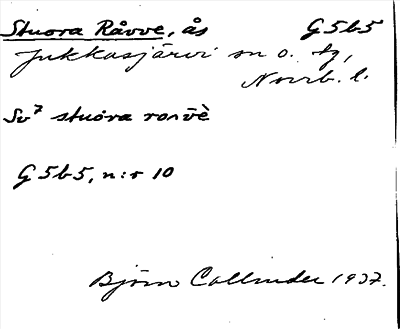 Stuora Råvve, ås G5b5
Jukkasjärvi sn o. tg,
Norrb. l.
Sv7 stuora rov̄è
G5b5, n:r 10
Björn Collinder 1937.